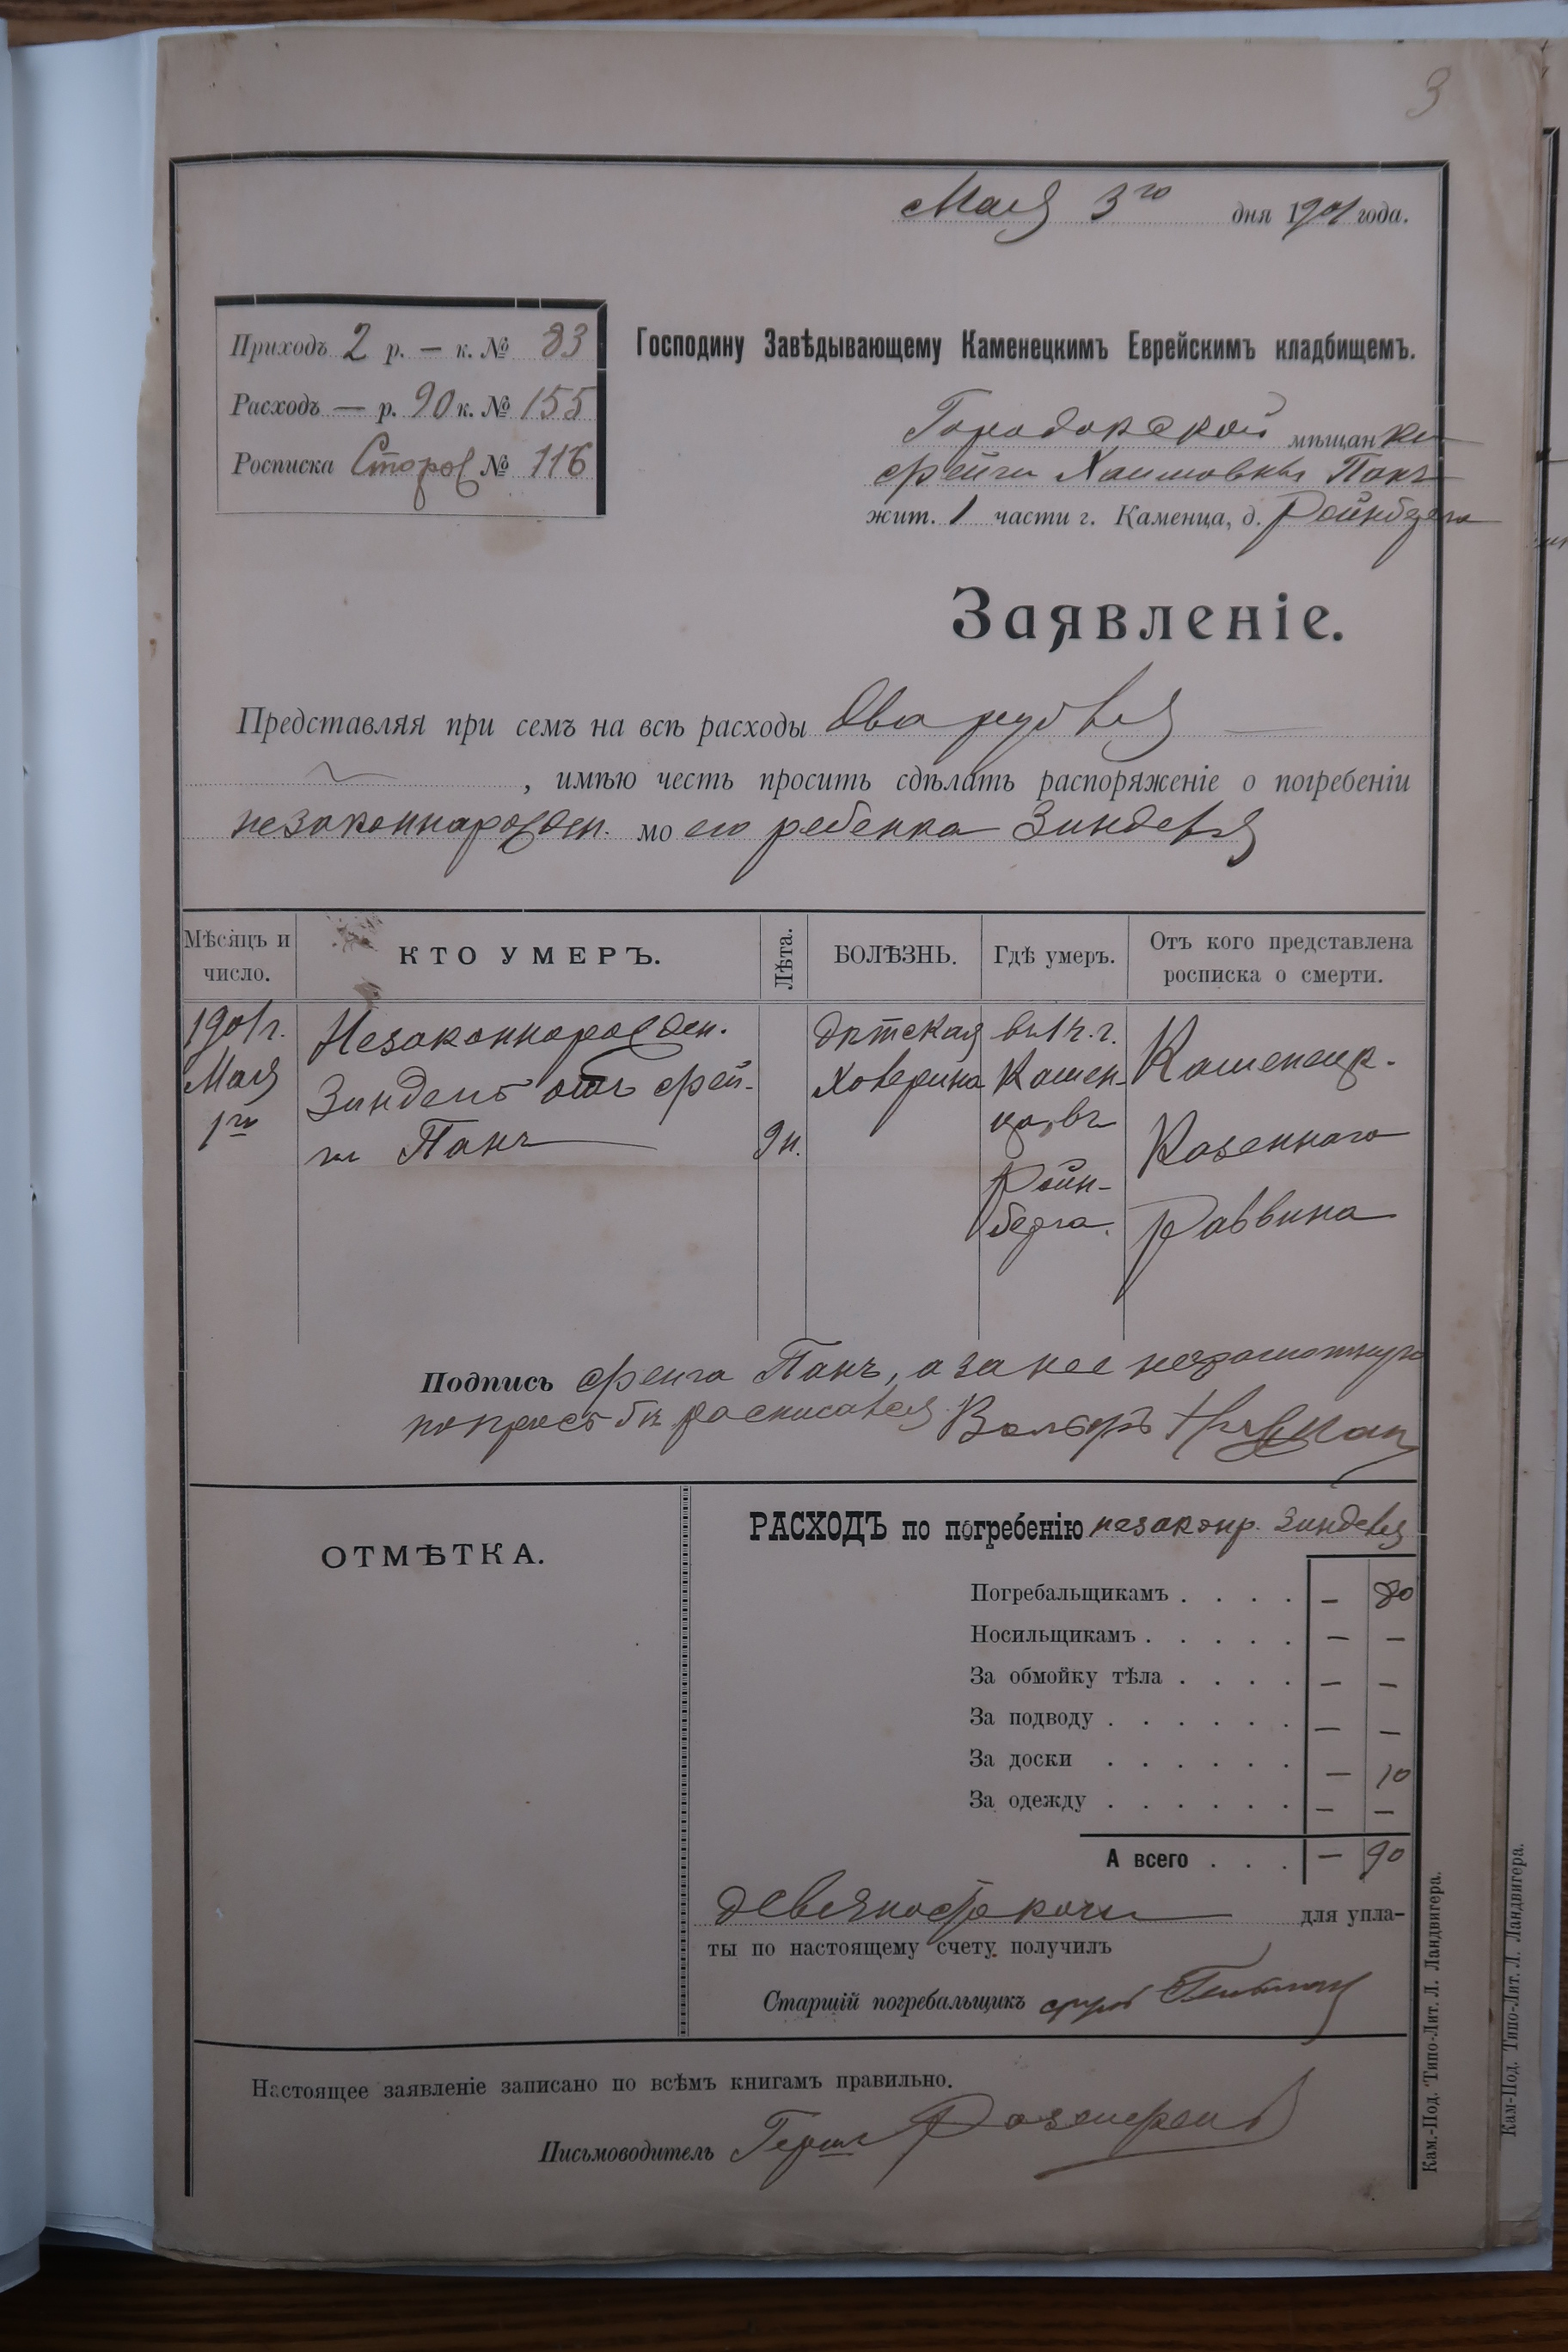 3
Мая 3го дня 1901 года.
Приходъ 2 р. — к. № 83
Расходъ — р. 90 к. № 155
Росписка Сторож № 116
Господину Завѣдывающему Каменецкимъ Еврейскимъ кладбищемъ.
Городокской мѣщанки
Фейги Хаимовны Панъ
жит. 1 части г. Каменца, д. Ройнберга
Заявленіе.
Представляя при семъ на всѣ расходы два рубля
, имѣю честь просить сдѣлать распоряженіе о погребеніи
незаконнорожден. мо его ребенка Зинделя
Мѣсяцъ и число.
КТО УМЕРЪ.
Лѣта.
БОЛѢЗНЬ.
Гдѣ умеръ.
Отъ кого представлена росписка о смерти.
1901 г. Мая 1го
Незаконнорожден.
Зиндель отъ Фей-
ги Панъ
9 н.
Дѣтская
Холерина
въ 1 ч. г.
Камен-
ца, въ
Ройн-
берга.
Каменецк.
Казеннаго
Раввина
Подпись Фейга Панъ, а за нее неграмотную
по просьбѣ расписался Вольфъ
ОТМѢТКА.
РАСХОДЪ по погребенію незаконр. Зинделя
Погребальщикамъ . . . . — 80
Носильщикамъ . . . . . — —
За обмойку тѣла . . . . — —
За подводу . . . . . . — —
За доски . . . . . . — 10
За одежду . . . . . . — —
А всего . . . — 90
девяносто коп. для упла-
ты по настоящему счету получилъ
Старшій погребальщикъ
Настоящее заявленіе записано по всѣмъ книгамъ правильно.
Письмоводитель Герш
Кам.-Под. Типо-Лит. Л. Ландвигера.
Кам-Под. Типо-Лит. Л. Ландвигера.